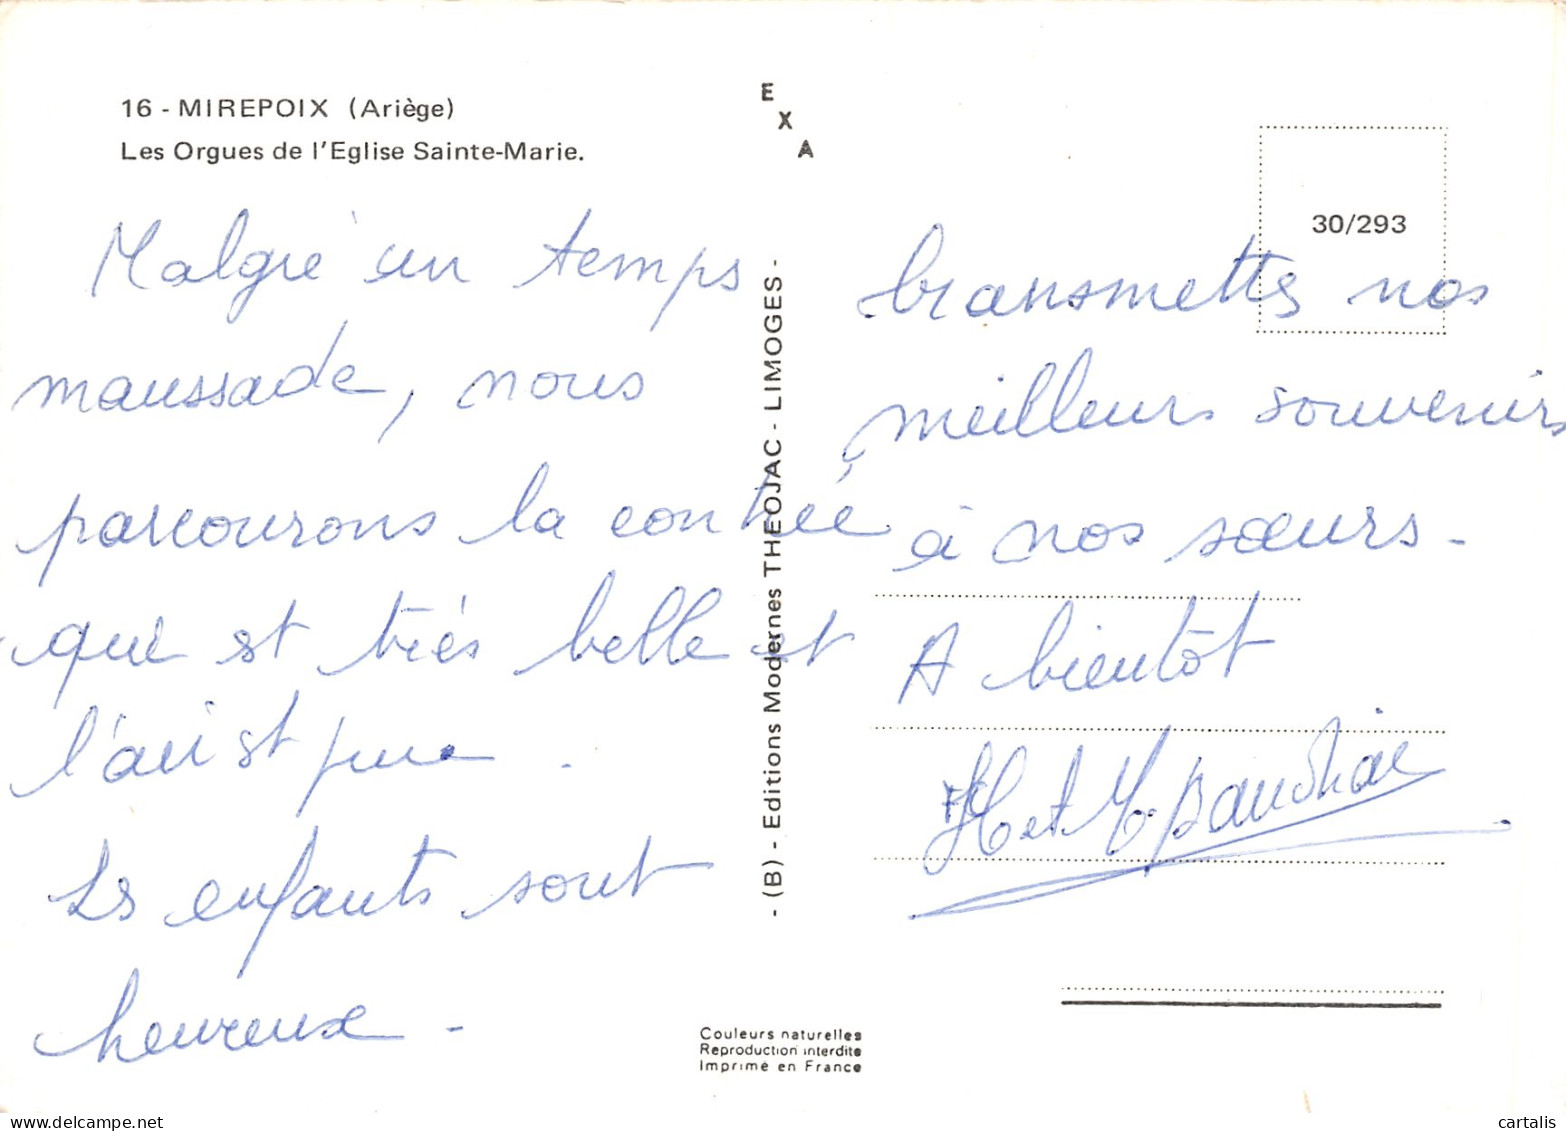 16 - MIREPOIX (Ariège)
Les Orgues de l'Eglise Sainte-Marie.
E
X
A
30/293
Malgré un temps
maussade, nous
parcourons la contrée
qui est très belle et
l'air est pure .
Les enfants sont
heureux -
transmettez nos
meilleurs souvenirs
à nos sœurs -
A bientôt
H et M
- (B) - Editions Modernes THEOJAC - LIMOGES -
Couleurs naturelles
Reproduction interdite
Imprimé en France
www.delcampe.net
cartalis